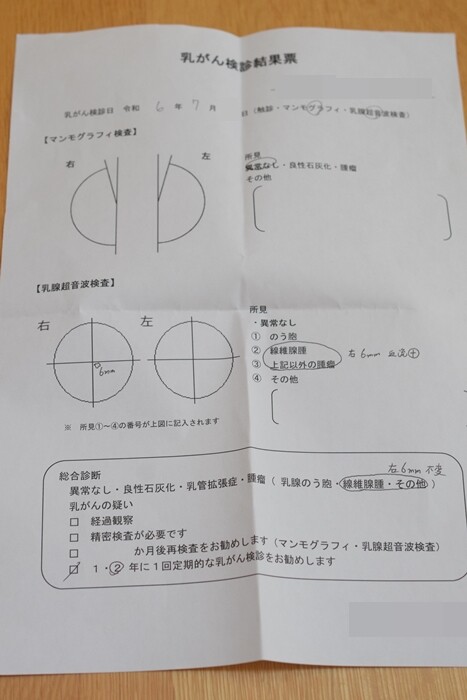 乳がん検診結果票
乳がん検診日 令和 6 年 7 月 日（触診・マンモグラフィ・乳腺超音波検査）
【マンモグラフィ検査】
右 左
所見
異常なし・良性石灰化・腫瘤
その他
【乳腺超音波検査】
右 左
6mm
所見
・異常なし
① のう胞
② 線維腺腫
③ 上記以外の腫瘤
④ その他
右 6mm 血流⊕
※ 所見①～④の番号が上図に記入されます
右 6mm 不変
総合診断
異常なし・良性石灰化・乳管拡張症・腫瘤（ 乳腺のう胞・線維腺腫・その他 ）
乳がんの疑い
□ 経過観察
□ 精密検査が必要です
□ か月後再検査をお勧めします（マンモグラフィ・乳腺超音波検査）
☑ 1・② 年に1回定期的な乳がん検診をお勧めします